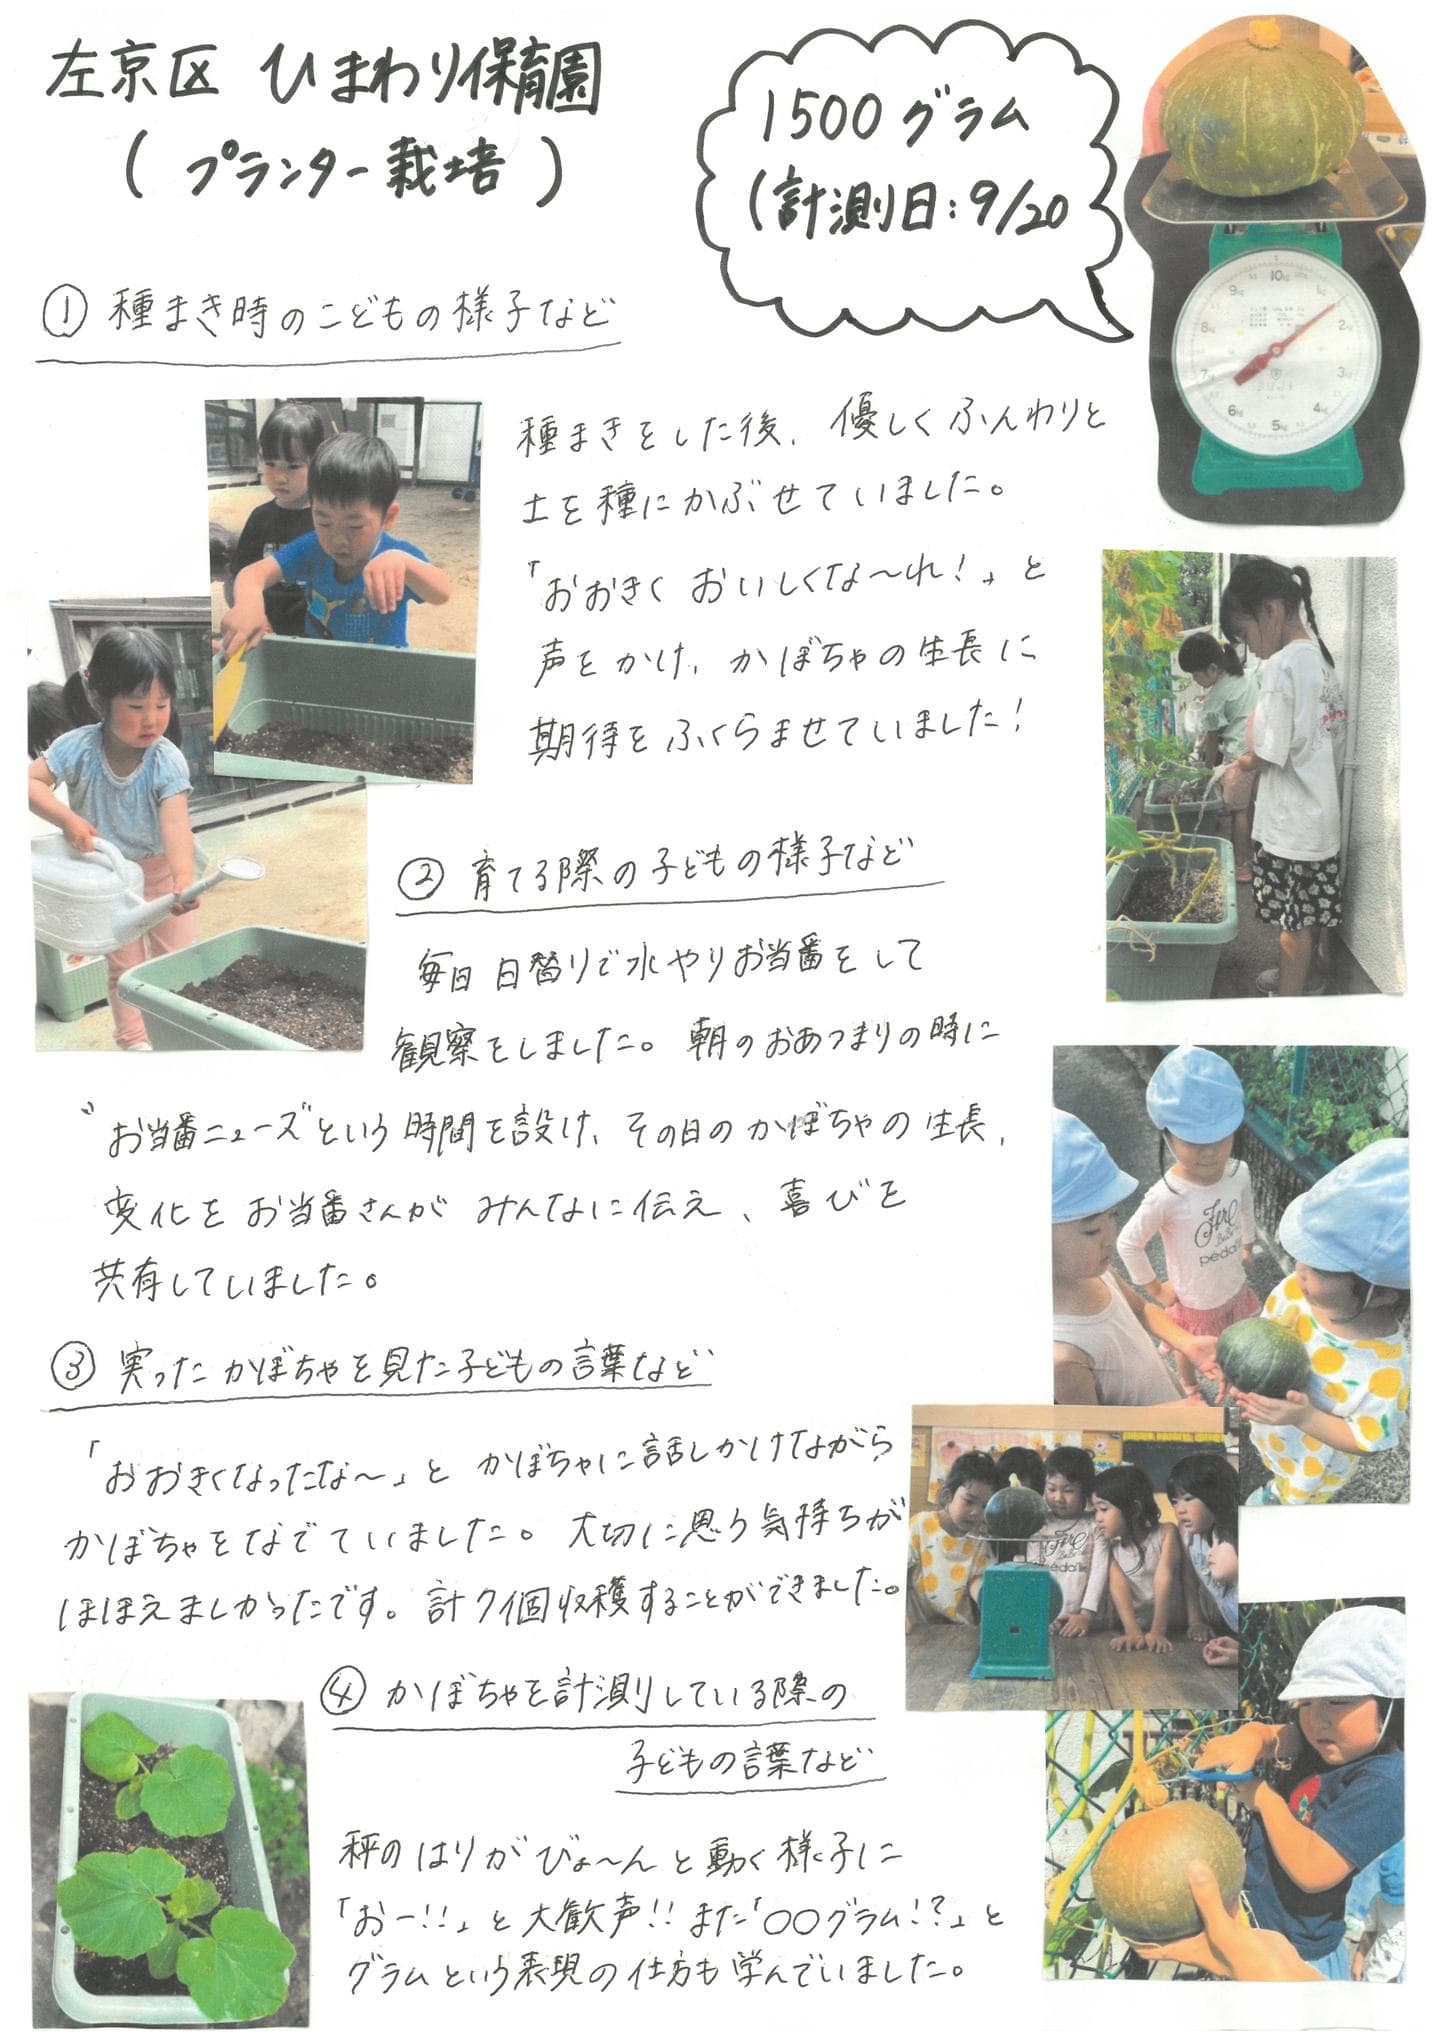 左京区 ひまわり保育園
(プランター栽培)
1500グラム
(計測日:9/20
① 種まき時のこどもの様子など
種まきをした後、優しくふんわりと
土を種にかぶせていました。
「おおきく おいしくな〜れ!」と
声をかけ、かぼちゃの生長に
期待をふくらませていました!
② 育てる際の子どもの様子など
毎日 日替りで水やりお当番をして
観察をしました。朝のおあつまりの時に
"お当番ニュース"という時間を設け、その日のかぼちゃの生長、
変化をお当番さんが みんなに伝え、喜びを
共有していました。
③ 実ったかぼちゃを見た子どもの言葉など
「おおきくなったな〜」と かぼちゃに話しかけながら
かぼちゃをなでていました。大切に思う気持ちが
ほほえましかったです。計7個収穫することができました。
④ かぼちゃを計測している際の
子どもの言葉など
秤のはりがびょ〜んと動く様子に
「おー!!」と大歓声!!また「〇〇グラム!?」と
グラムという表現の仕方も学んでいました。
10kg
1kg
2kg
3kg
4kg
5kg
6kg
7kg
8kg
9kg
Fire
pédale